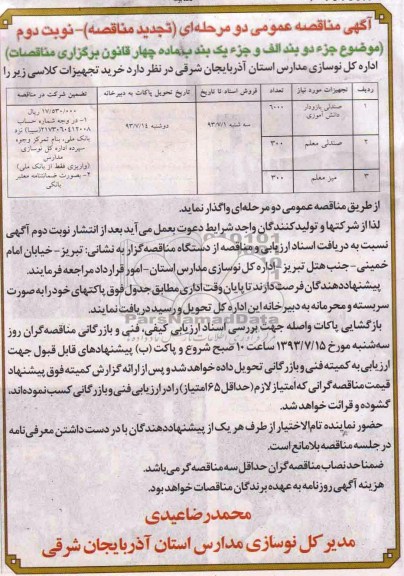 آگهی مناقصه عمومی دو مرحله‌ای (تجدید مناقصه)- نوبت دوم
(موضوع جزء دو بند الف و جزء یک بند ب ماده چهار قانون برگزاری مناقصات)
اداره کل نوسازی مدارس استان آذربایجان شرقی در نظر دارد خرید تجهیزات کلاسی زیر را
ردیف تجهیزات مورد نیاز تعداد فروش اسناد تا تاریخ تاریخ تحویل پاکات به دبیرخانه تضمین شرکت در مناقصه
۱ صندلی بازودار دانش آموزی ۶۰۰۰ سه شنبه ۹۳/۷/۱ دوشنبه ۹۳/۷/۱۴
۲ صندلی معلم ۳۰۰
۳ میز معلم ۳۰۰
۱۷/۵۳۰/۰۰۰ ریال
۱- در وجه شماره حساب
۲۱۷۳۶۰۴۱۲۰۰۸ (سیبا) نزد
بانک ملی، بنام تمرکز وجوه
سپرده اداره کل نوسازی
مدارس
(واریزی فقط از بانک ملی)
۲- بصورت ضمانتنامه معتبر
بانکی
از طریق مناقصه عمومی دو مرحله‌ای واگذار نماید.
لذا از شرکتها و تولیدکنندگان واجد شرایط دعوت بعمل می‌آید بعد از انتشار نوبت دوم آگهی
نسبت به دریافت اسناد ارزیابی و مناقصه از دستگاه مناقصه‌گزار به نشانی: تبریز- خیابان امام
خمینی- جنب هتل تبریز- اداره کل نوسازی مدارس استان- امور قرارداد مراجعه فرمایند.
پیشنهاددهندگان فرصت دارند تا پایان وقت اداری مطابق جدول فوق پاکتهای خود را به صورت
سربسته و محرمانه به دبیرخانه این اداره کل تحویل و رسید دریافت نمایند.
بازگشایی پاکات واصله جهت بررسی اسناد ارزیابی کیفی، فنی و بازرگانی مناقصه‌گران روز
سه‌شنبه مورخ ۱۳۹۳/۷/۱۵ ساعت ۱۰ صبح شروع و پاکت (ب) پیشنهادهای قابل قبول جهت
ارزیابی به کمیته فنی و بازرگانی تحویل داده خواهد شد و پس از ارائه گزارش کمیته فوق پیشنهاد
قیمت مناقصه‌گرانی که امتیاز لازم (حداقل ۶۵ امتیاز) را در ارزیابی فنی و بازرگانی کسب نموده‌اند،
گشوده و قرائت خواهد شد.
حضور نماینده تام‌الاختیار از طرف هر یک از پیشنهاددهندگان با در دست داشتن معرفی‌نامه
در جلسه مناقصه بلامانع است.
ضمنا حدنصاب مناقصه‌گران حداقل سه مناقصه‌گر می‌باشد.
هزینه آگهی روزنامه به عهده برندگان مناقصات خواهد بود.
محمدرضا عیدی
مدیر کل نوسازی مدارس استان آذربایجان شرقی
ParsNamadData